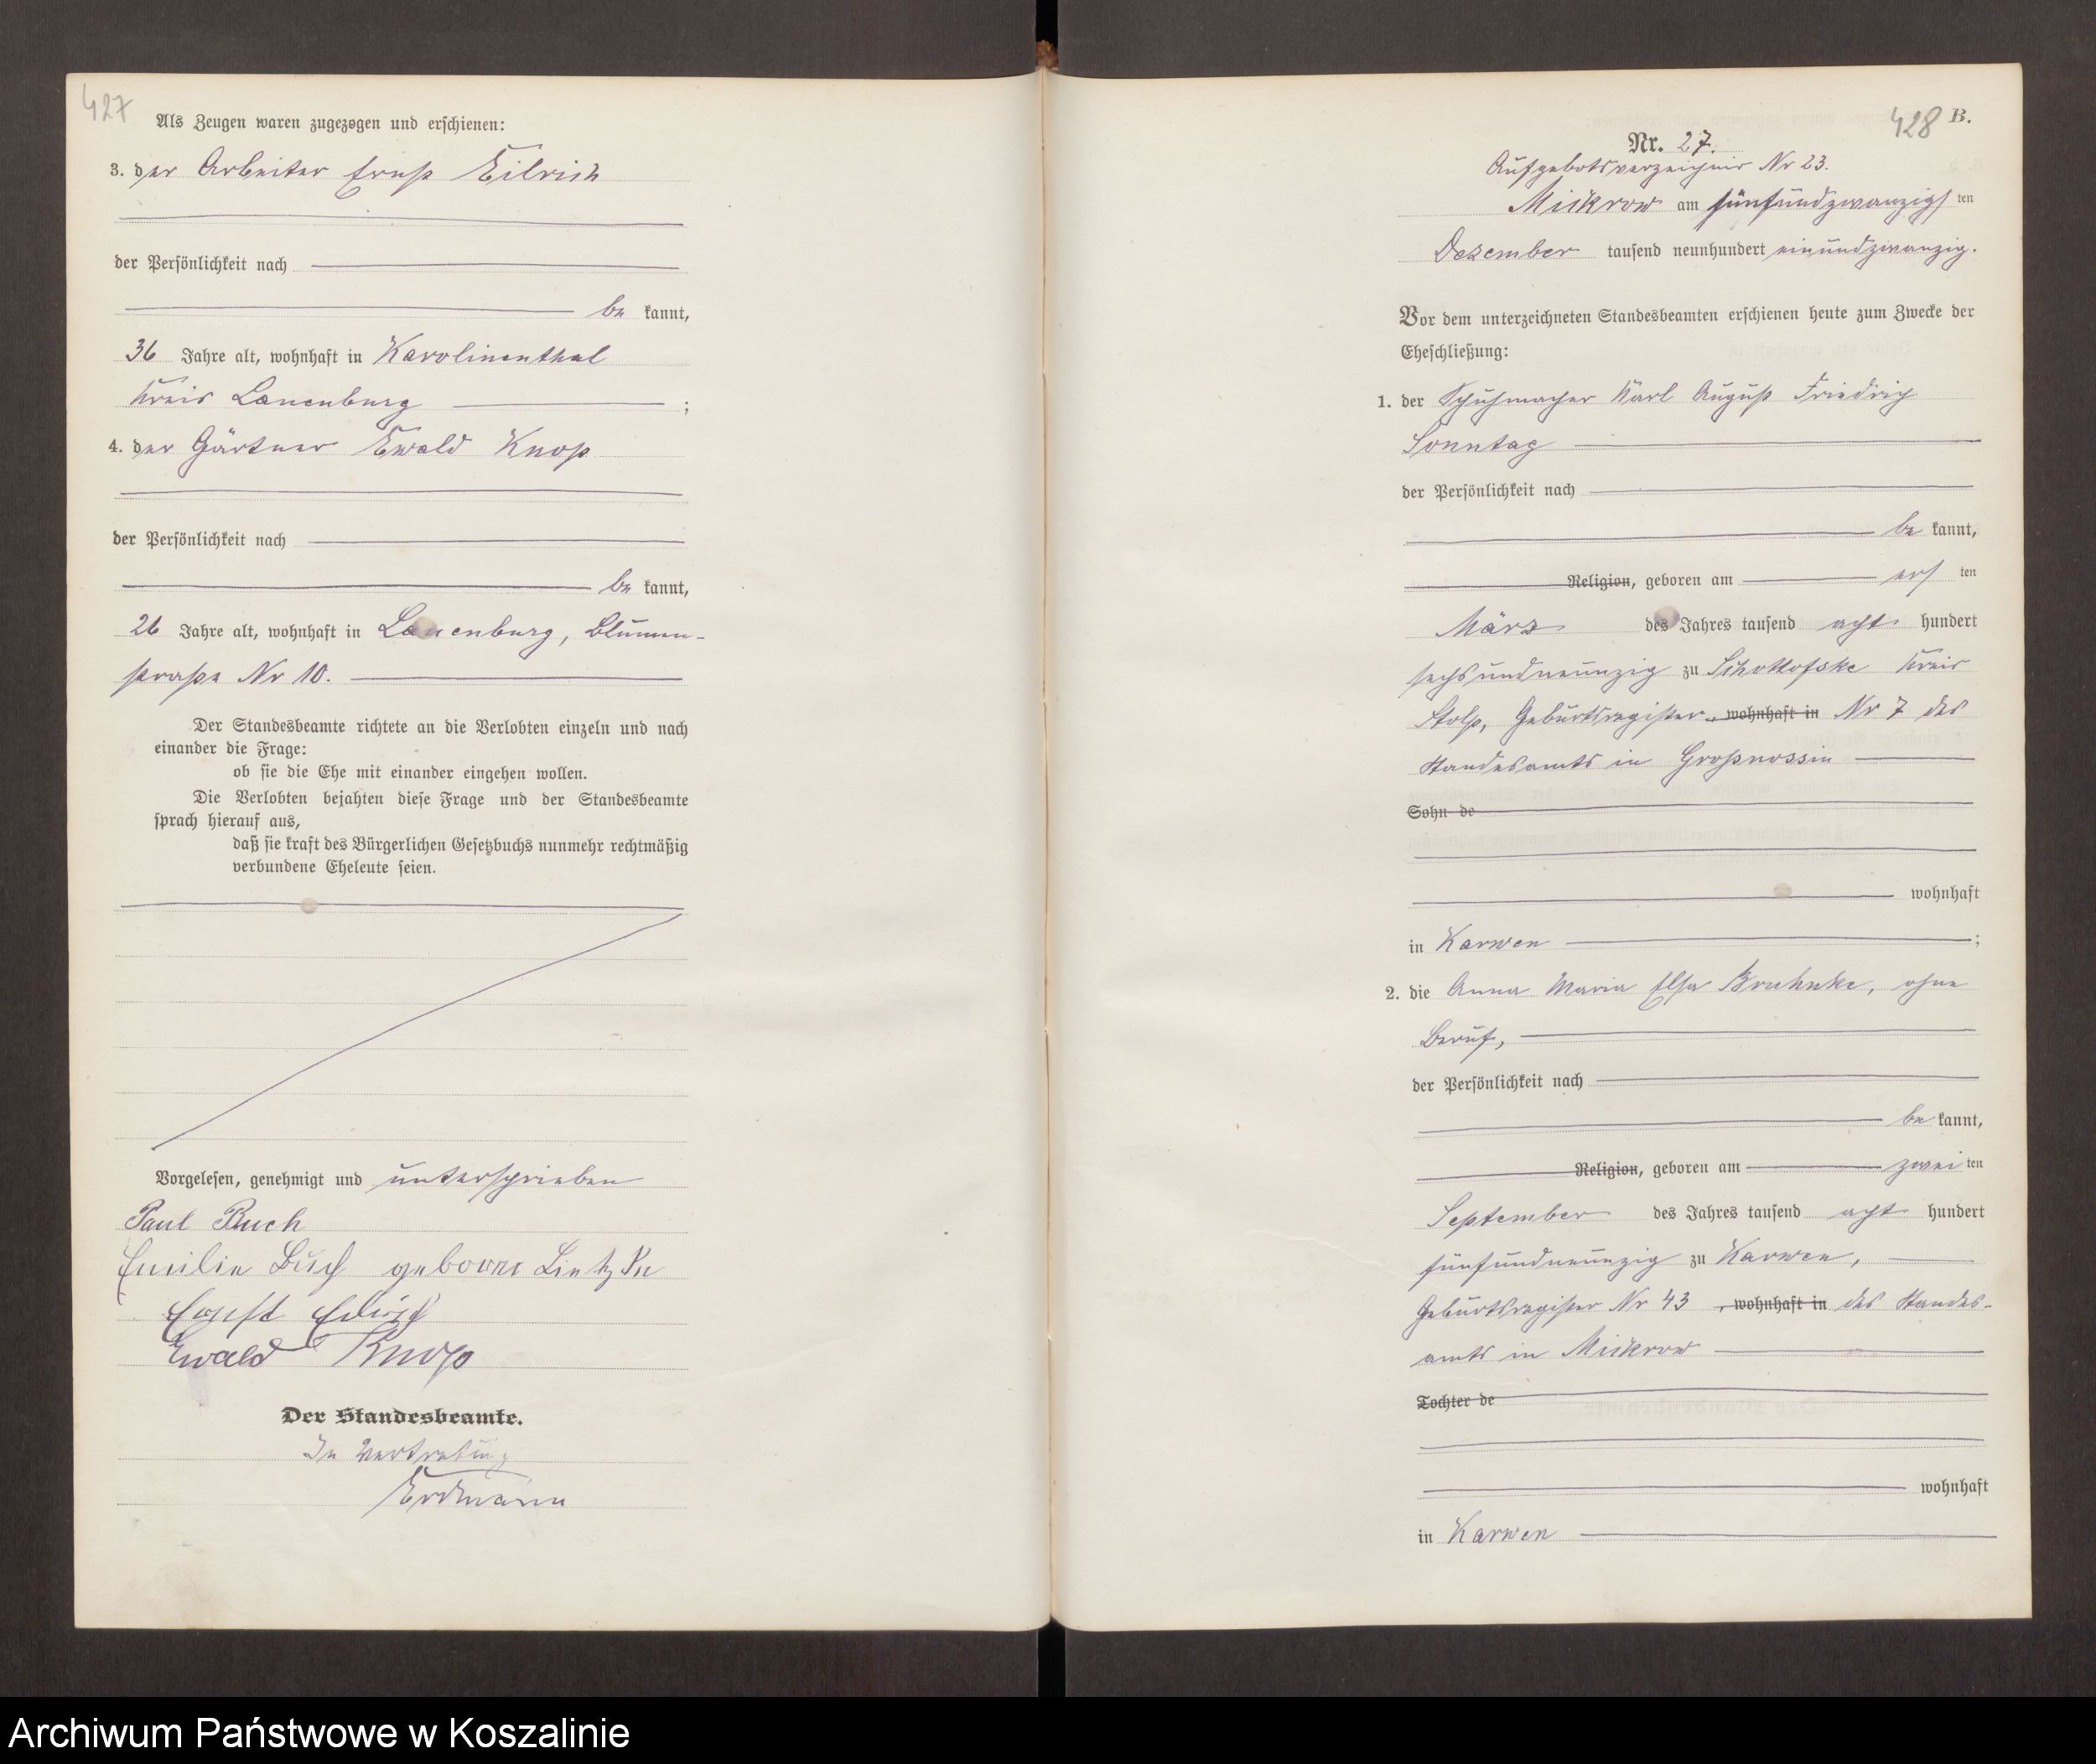 427
Als Zeugen waren zugezogen und erschienen:
3. der Arbeiter Ernst Eilrich
der Persönlichkeit nach
be kannt,
36 Jahre alt, wohnhaft in Karolinenthal
Kreis Lauenburg ;
4. der Gärtner Ewald Knop
der Persönlichkeit nach
be kannt,
26 Jahre alt, wohnhaft in Lauenburg, Blumen-
straße Nr 10.
Der Standesbeamte richtete an die Verlobten einzeln und nach
einander die Frage:
ob sie die Ehe mit einander eingehen wollen.
Die Verlobten bejahten diese Frage und der Standesbeamte
sprach hierauf aus,
daß sie kraft des Bürgerlichen Gesetzbuchs nunmehr rechtmäßig
verbundene Eheleute seien.
Vorgelesen, genehmigt und unterschrieben
Paul Buch
Emilie Buch geborne
Ernst
Ewald Knop
Der Standesbeamte.
In Vertretung
Erdmann
428 B.
Nr. 27.
Aufgebotsverzeichnis Nr 23.
Mickrow am fünfundzwanzigsten
Dezember tausend neunhundert einundzwanzig.
Vor dem unterzeichneten Standesbeamten erschienen heute zum Zwecke der
Eheschließung:
1. der Schuhmacher Karl August Friedrich
Sonntag
der Persönlichkeit nach
be kannt,
Religion, geboren am ersten
März des Jahres tausend acht hundert
sechsundneunzig zu Schottofske Kreis
Stolp, Geburtsregister, wohnhaft in Nr 7 des
Standesamts in Großnossin
Sohn de
wohnhaft
in Karwen ;
2. die Anna Maria Elsa Bruhnke, ohne
Beruf,
der Persönlichkeit nach
be kannt,
Religion, geboren am zweiten
September des Jahres tausend acht hundert
fünfundneunzig zu Karwen,
Geburtsregister Nr 43, wohnhaft in des Standes-
amts in Mickrow
Tochter de
wohnhaft
in Karwen
Archiwum Państwowe w Koszalinie